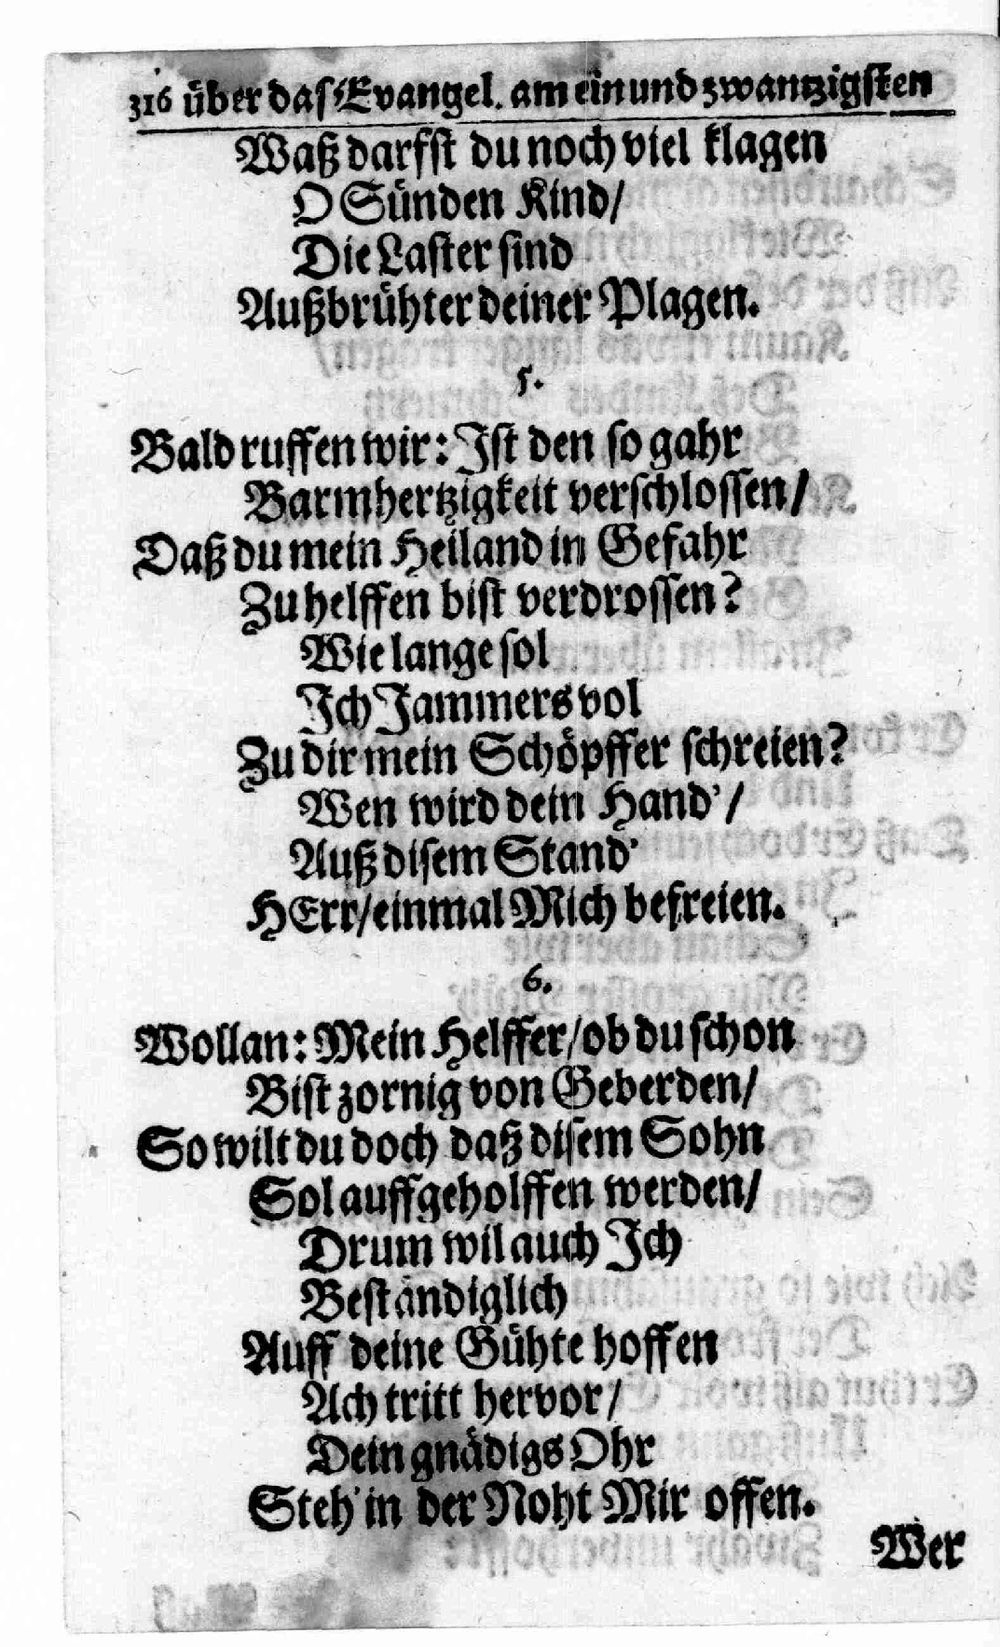 316 über das Evangel. am ein und zwantzigsten
Waß darfst du noch viel klagen
O Sünden Kind/
Die Laster sind
Außbrühter deiner Plagen.
5.
Bald ruffen wir: Ist den so gahr
Barmhertzigkeit verschlossen/
Daß du mein Heiland in Gefahr
Zu helffen bist verdrossen?
Wie lange sol
Ich Jammers vol
Zu dir mein Schöpffer schreien?
Wen wird dein Hand'/
Auß disem Stand'
HErr/einmal Mich befreien.
6.
Wollan: Mein Helffer/ob du schon
Bist zornig von Geberden/
So wilt du doch daß disem Sohn
Sol auffgeholffen werden/
Drum wil auch Ich
Beständiglich
Auff deine Gühte hoffen
Ach tritt hervor/
Dein gnädigs Ohr
Steh' in der Noht Mir offen.
Wer